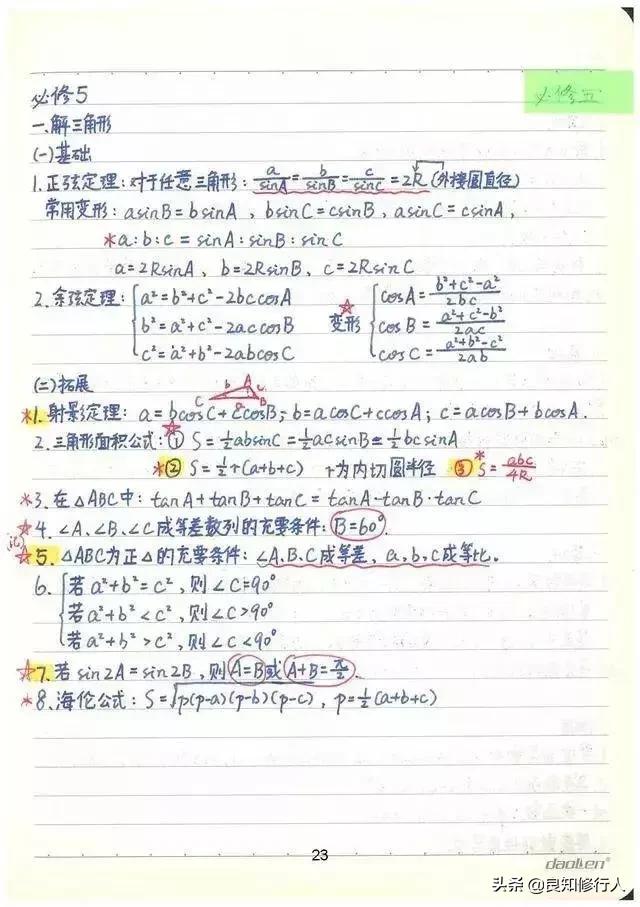 必修五
必修5
一、解三角形
(一)基础
1.正弦定理:对于任意三角形: a/sinA = b/sinB = c/sinC = 2R (外接圆直径)
常用变形: asinB = bsinA , bsinC = csinB , asinC = csinA ,
*a:b:c = sinA:sinB:sinC
a=2RsinA , b=2RsinB , c=2RsinC
2.余弦定理: { a²=b²+c²-2bccosA 变形 { cosA = (b²+c²-a²)/2bc
b²=a²+c²-2accosB cosB = (a²+c²-b²)/2ac
c²=a²+b²-2abcosC cosC = (a²+b²-c²)/2ab
(二)拓展
A b c C a B
*1.射影定理: a=bcosC+ccosB; b=acosC+ccosA; c=acosB+bcosA.
2.三角形面积公式: ☆① S=½absinC=½acsinB=½bcsinA
*② S=½r(a+b+c) r为内切圆半径 ③* S=abc/4R
*3.在△ABC中: tanA+tanB+tanC=tanA·tanB·tanC
☆4.∠A、∠B、∠C成等差数列的充要条件: B=60°.
(记)
☆5.△ABC为正△的充要条件: ∠A,B,C成等差, a,b,c成等比。
6. { 若a²+b²=c²,则∠C=90°
若a²+b²<c²,则∠C>90°
若a²+b²>c²,则∠C<90°
☆7.若sin2A=sin2B,则A=B或A+B=π/2.
*8.海伦公式: S=√p(p-a)(p-b)(p-c) , p=½(a+b+c)
23
daolen®
头条 @良知修行人